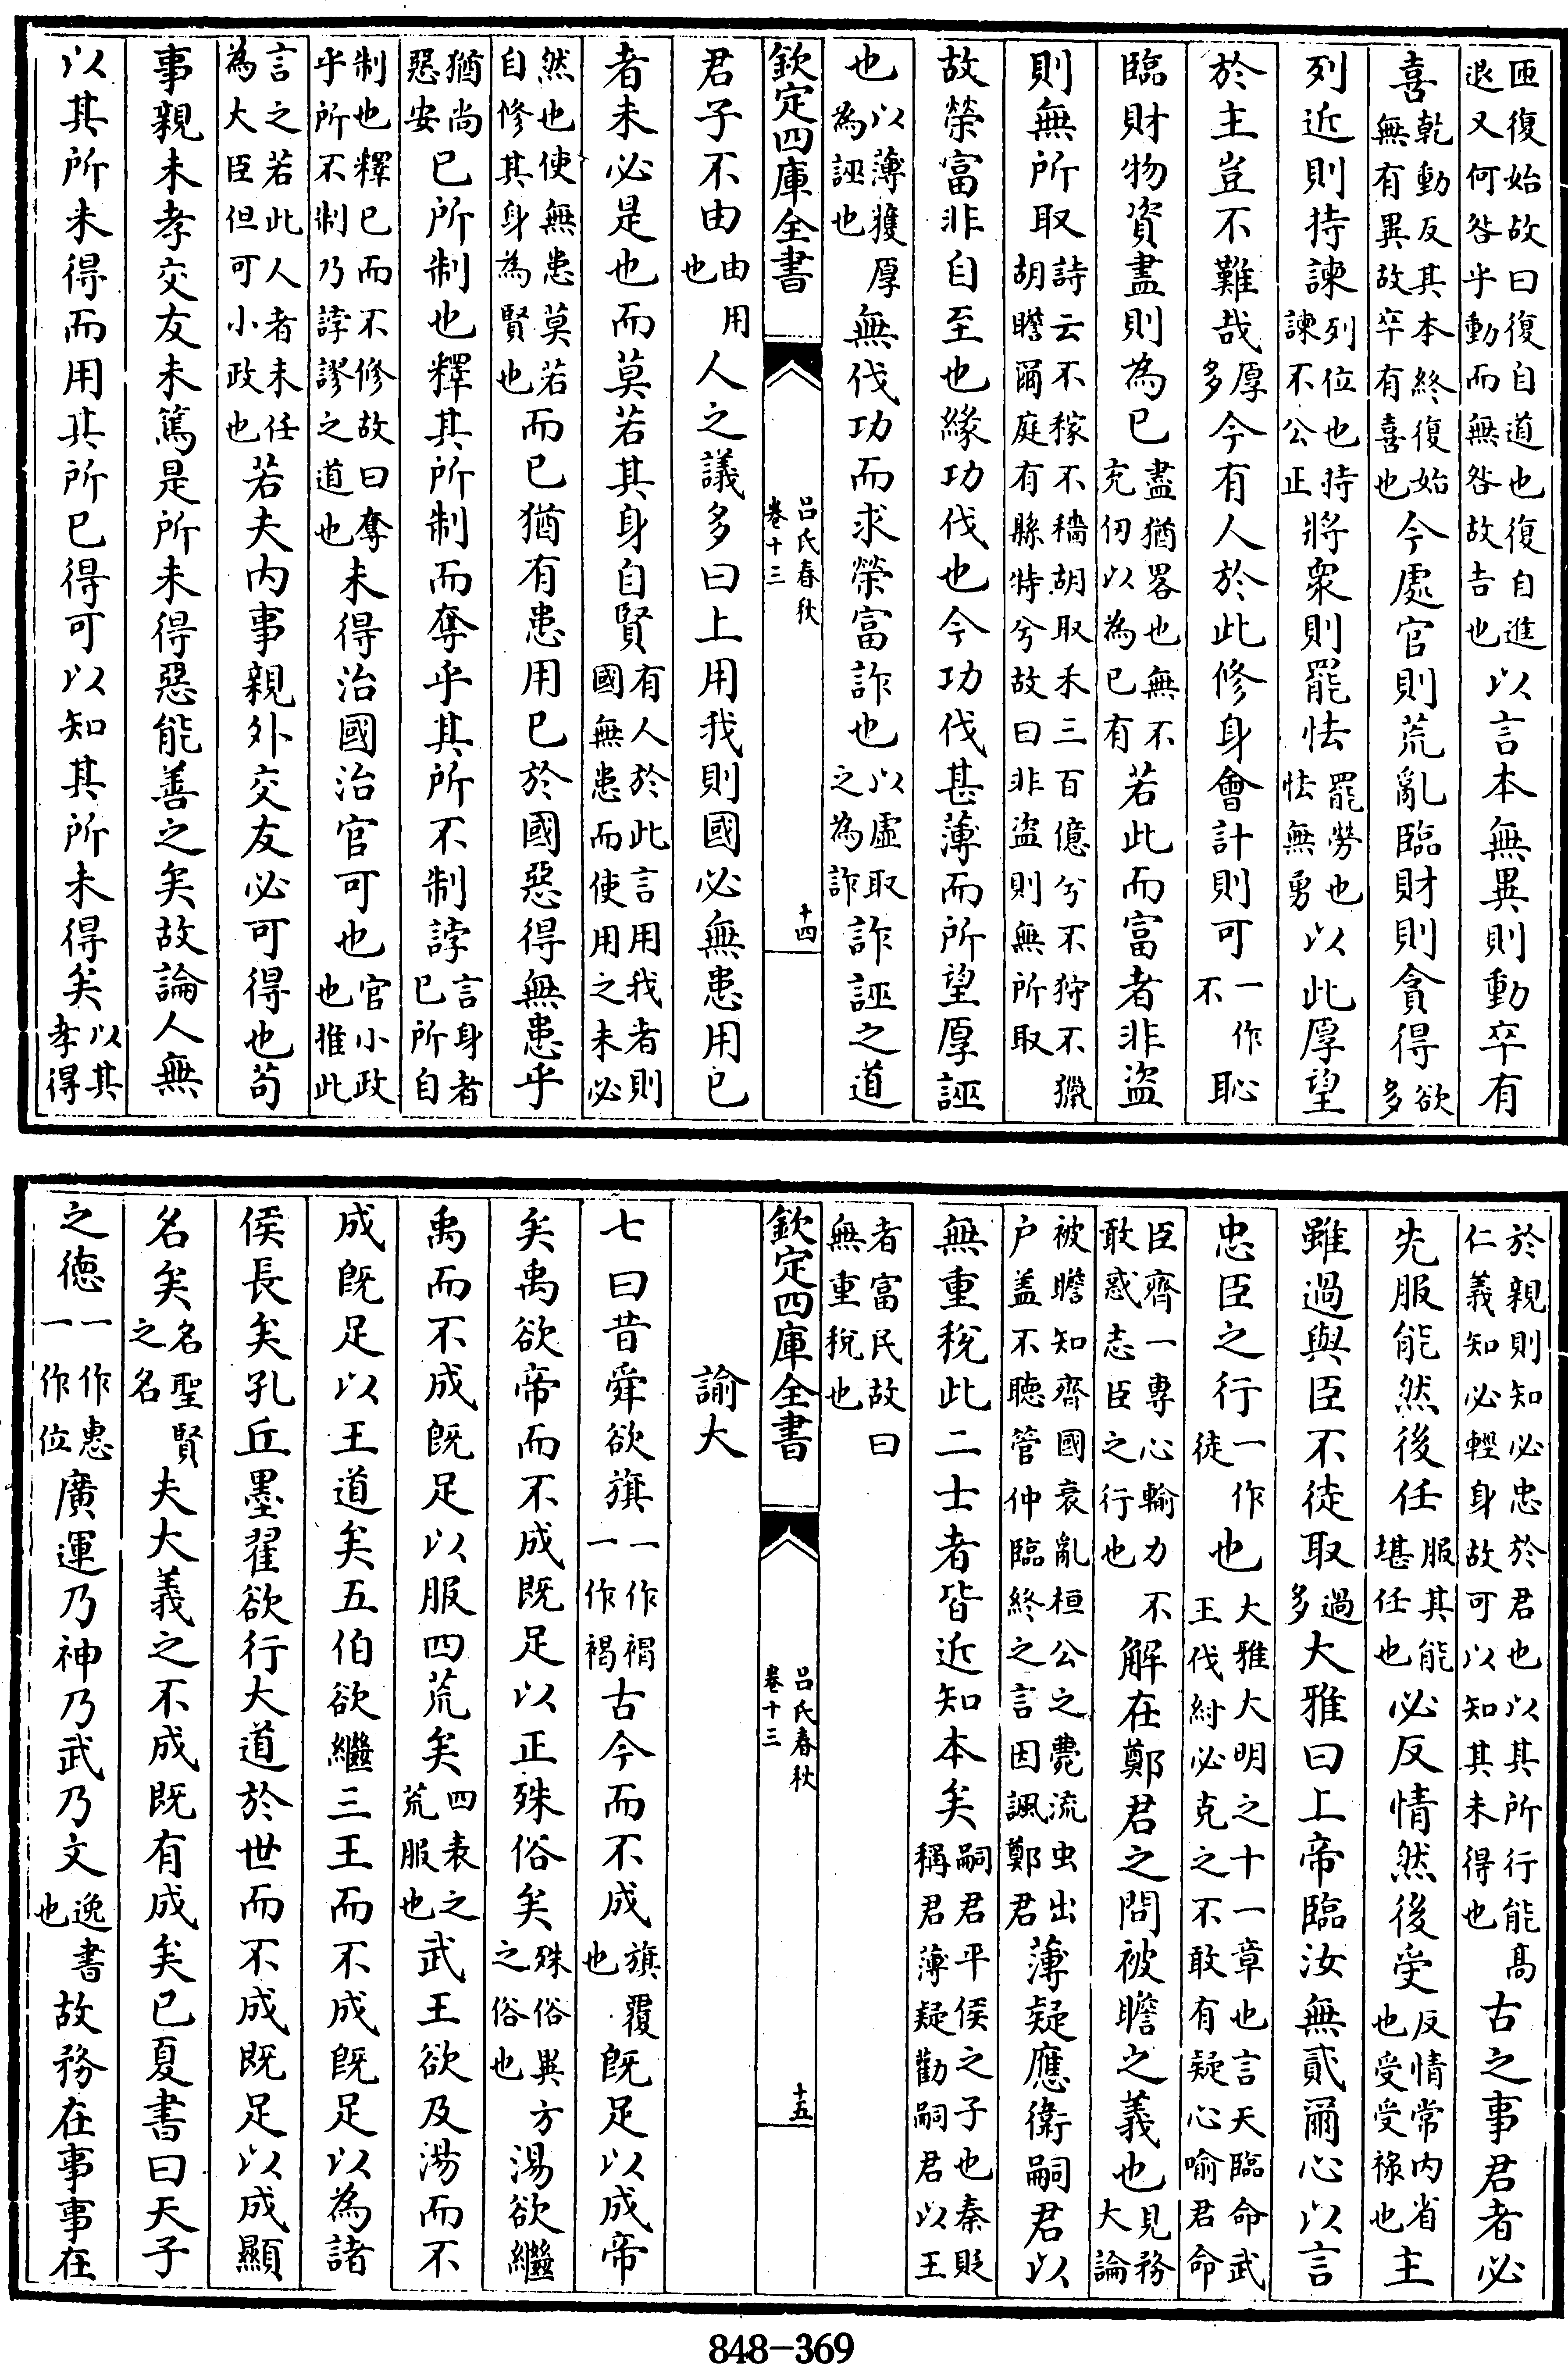 匝復始故曰復自道也復自進退又何咎乎動而無咎故吉也以言本無異則動卒有
喜乾動反其本終復始無有異故卒有喜也今處官則荒亂臨財則貪得欲多
列近則持諫列位也持諫不公正將衆則罷怯罷勞也怯無勇以此厚望
於主豈不難哉厚多今有人於此修身會計則可一作不恥
臨財物資盡則為己盡猶畧也無不充仞以為己有若此而富者非盜
則無所取詩云不稼不穡胡取禾三百億兮不狩不獵胡瞻爾庭有縣特兮故曰非盜則無所取
故榮富非自至也緣功伐也今功伐甚薄而所望厚誣
也以薄獲厚為誣也無伐功而求榮富詐也以虛取之為詐詐誣之道
欽定四庫全書 呂氏春秋 卷十三 十四
君子不由由用也人之議多曰上用我則國必無患用己
者未必是也而莫若其身自賢有人於此言用我者則國無患而使用之未必
然也使無患莫若自修其身為賢也而己猶有患用己於國惡得無患乎
猶尚惡安已所制也釋其所制而奪乎其所不制誖言身者已所自
制也釋已而不修故曰奪乎所不制乃誖謬之道也未得治國治官可也官小政也推此
言之若此人者未任為大臣但可小政也若夫内事親外交友必可得也苟
事親未孝交友未篤是所未得惡能善之矣故論人無
以其所未得而用其所已得可以知其所未得矣以其孝得
於親則知必忠於君也以其所行能髙仁義知必輕身故可以知其未得也古之事君者必
先服能然後任服其能堪任也必反情然後受反情常内省也受受祿也主
雖過與臣不徒取過多大雅曰上帝臨汝無貳爾心以言
忠臣之行一作徒也大雅大明之十一章也言天臨命武王伐紂必克之不敢有疑心喻君命
臣齊一專心輸力不敢惑志臣之行也解在鄭君之問被瞻之義也見務大論
被瞻知齊國衰亂桓公之薨流虫出户盖不聽管仲臨終之言因諷鄭君薄疑應衛嗣君以
無重稅此二士者皆近知本矣嗣君平侯之子也秦貶稱君薄疑勸嗣君以王
者富民故曰無重稅也
欽定四庫全書 呂氏春秋 卷十三 十五
諭大
七曰昔舜欲旗一作褐一作褐古今而不成旗覆也既足以成帝
矣禹欲帝而不成既足以正殊俗矣殊俗異方之俗也湯欲繼
禹而不成既足以服四荒矣四表之荒服也武王欲及湯而不
成既足以王道矣五伯欲繼三王而不成既足以為諸
侯長矣孔丘墨翟欲行大道於世而不成既足以成顯
名矣名聖賢之名夫大義之不成既有成矣已夏書曰天子
之徳一作惪一作位廣運乃神乃武乃文逸書也故務在事事在
848-369